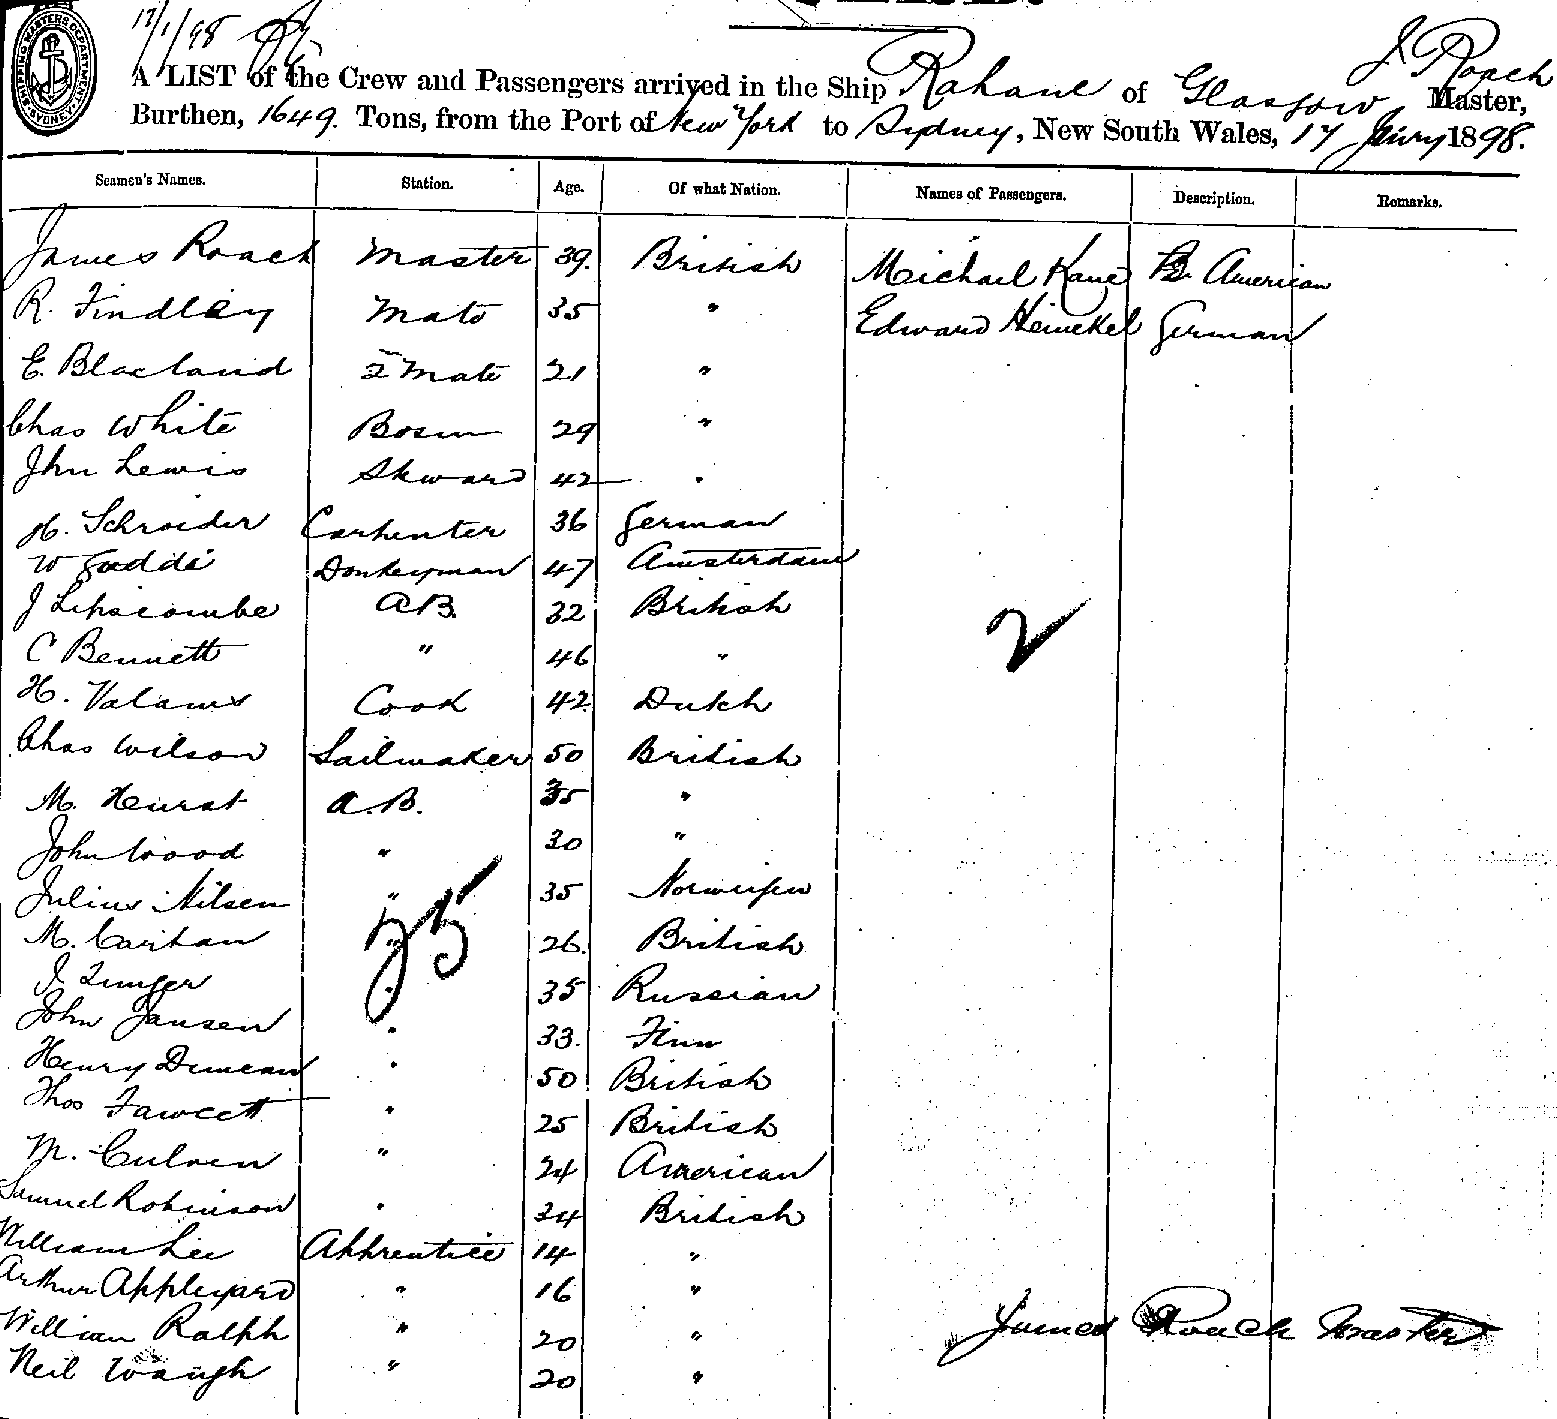 17/1/98
SHIPPING MASTERS DEPARTMENT SYDNEY
J Roach
A LIST of the Crew and Passengers arrived in the Ship Rahane of Glasgow, Master,
Burthen, 1649. Tons, from the Port of New York to Sydney, New South Wales, 17 Janry 1898.
Seamen's Names. Station. Age. Of what Nation. Names of Passengers. Description. Remarks.
James Roach Master 39. British Michael Kane B. American
R. Findley Mate 35 " Edward Heinekel German
E. Blacland 2 Mate 21 "
Chas White Bosun 29 "
Jhn Lewis Steward 42 "
H. Schroider Carpenter 36 German
W Donkeyman 47 Amsterdam
J Lipscombe A.B. 32 British
C Bennett " 46 "
2
H. Cook 42 Dutch
Chas Wilson Sailmaker 50 British
M. Heurst A.B. 35 "
John Wood " 30 "
Julius Nilsen " 35
M. " 26. British
J. " 35 Russian
John Jansen " 33. Finn
Henry Duncan " 50 British
Thos Fawcett " 25 British
M. " 24 American
Samuel Robinson " 34 British
William Lee Apprentice 14 "
Arthur Appleyard " 16 "
William Ralph " 20 "
James Roach Master
Neil Waugh " 20 "